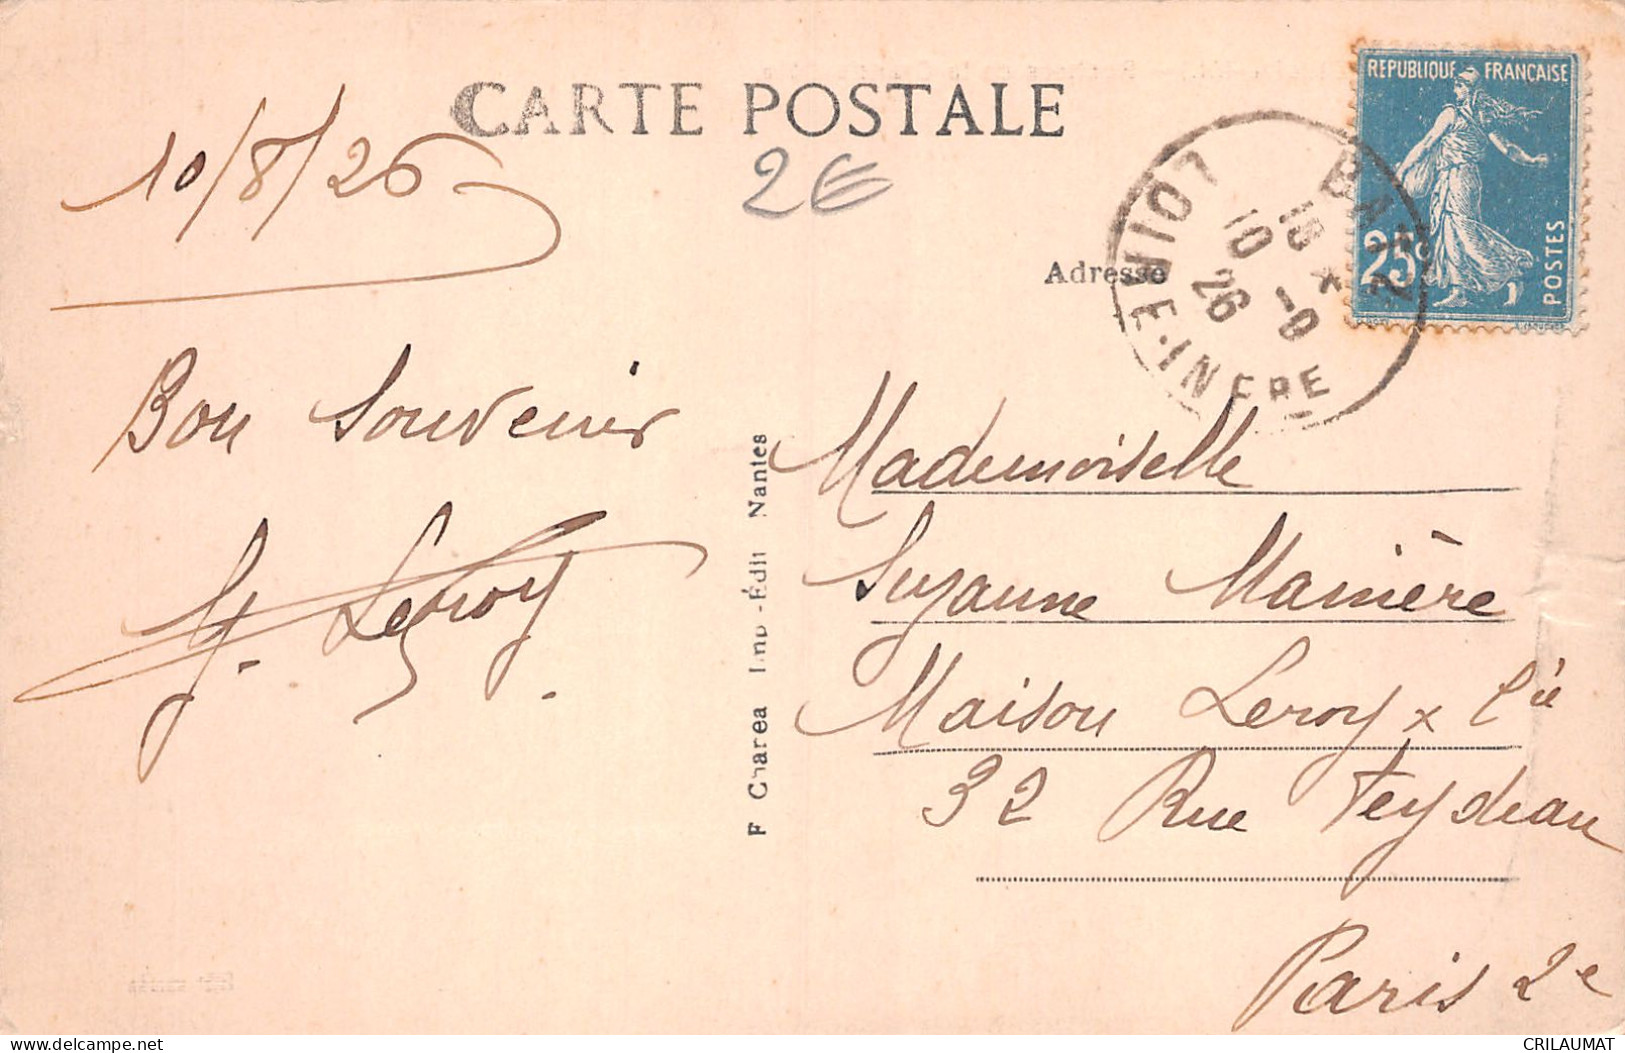 CARTE POSTALE
10/8/26
2€
REPUBLIQUE FRANÇAISE
25c
POSTES
LOIRE-INFRE
10 -8
26
Adresse
Bon Souvenir
Leroy
F Chapeau Imp.-Édit Nantes
Mademoiselle
Suzanne Manière
Maison Leroy & Cie
32 Rue Feydeau
Paris 2e
delcampe.net
CRILAUMAT